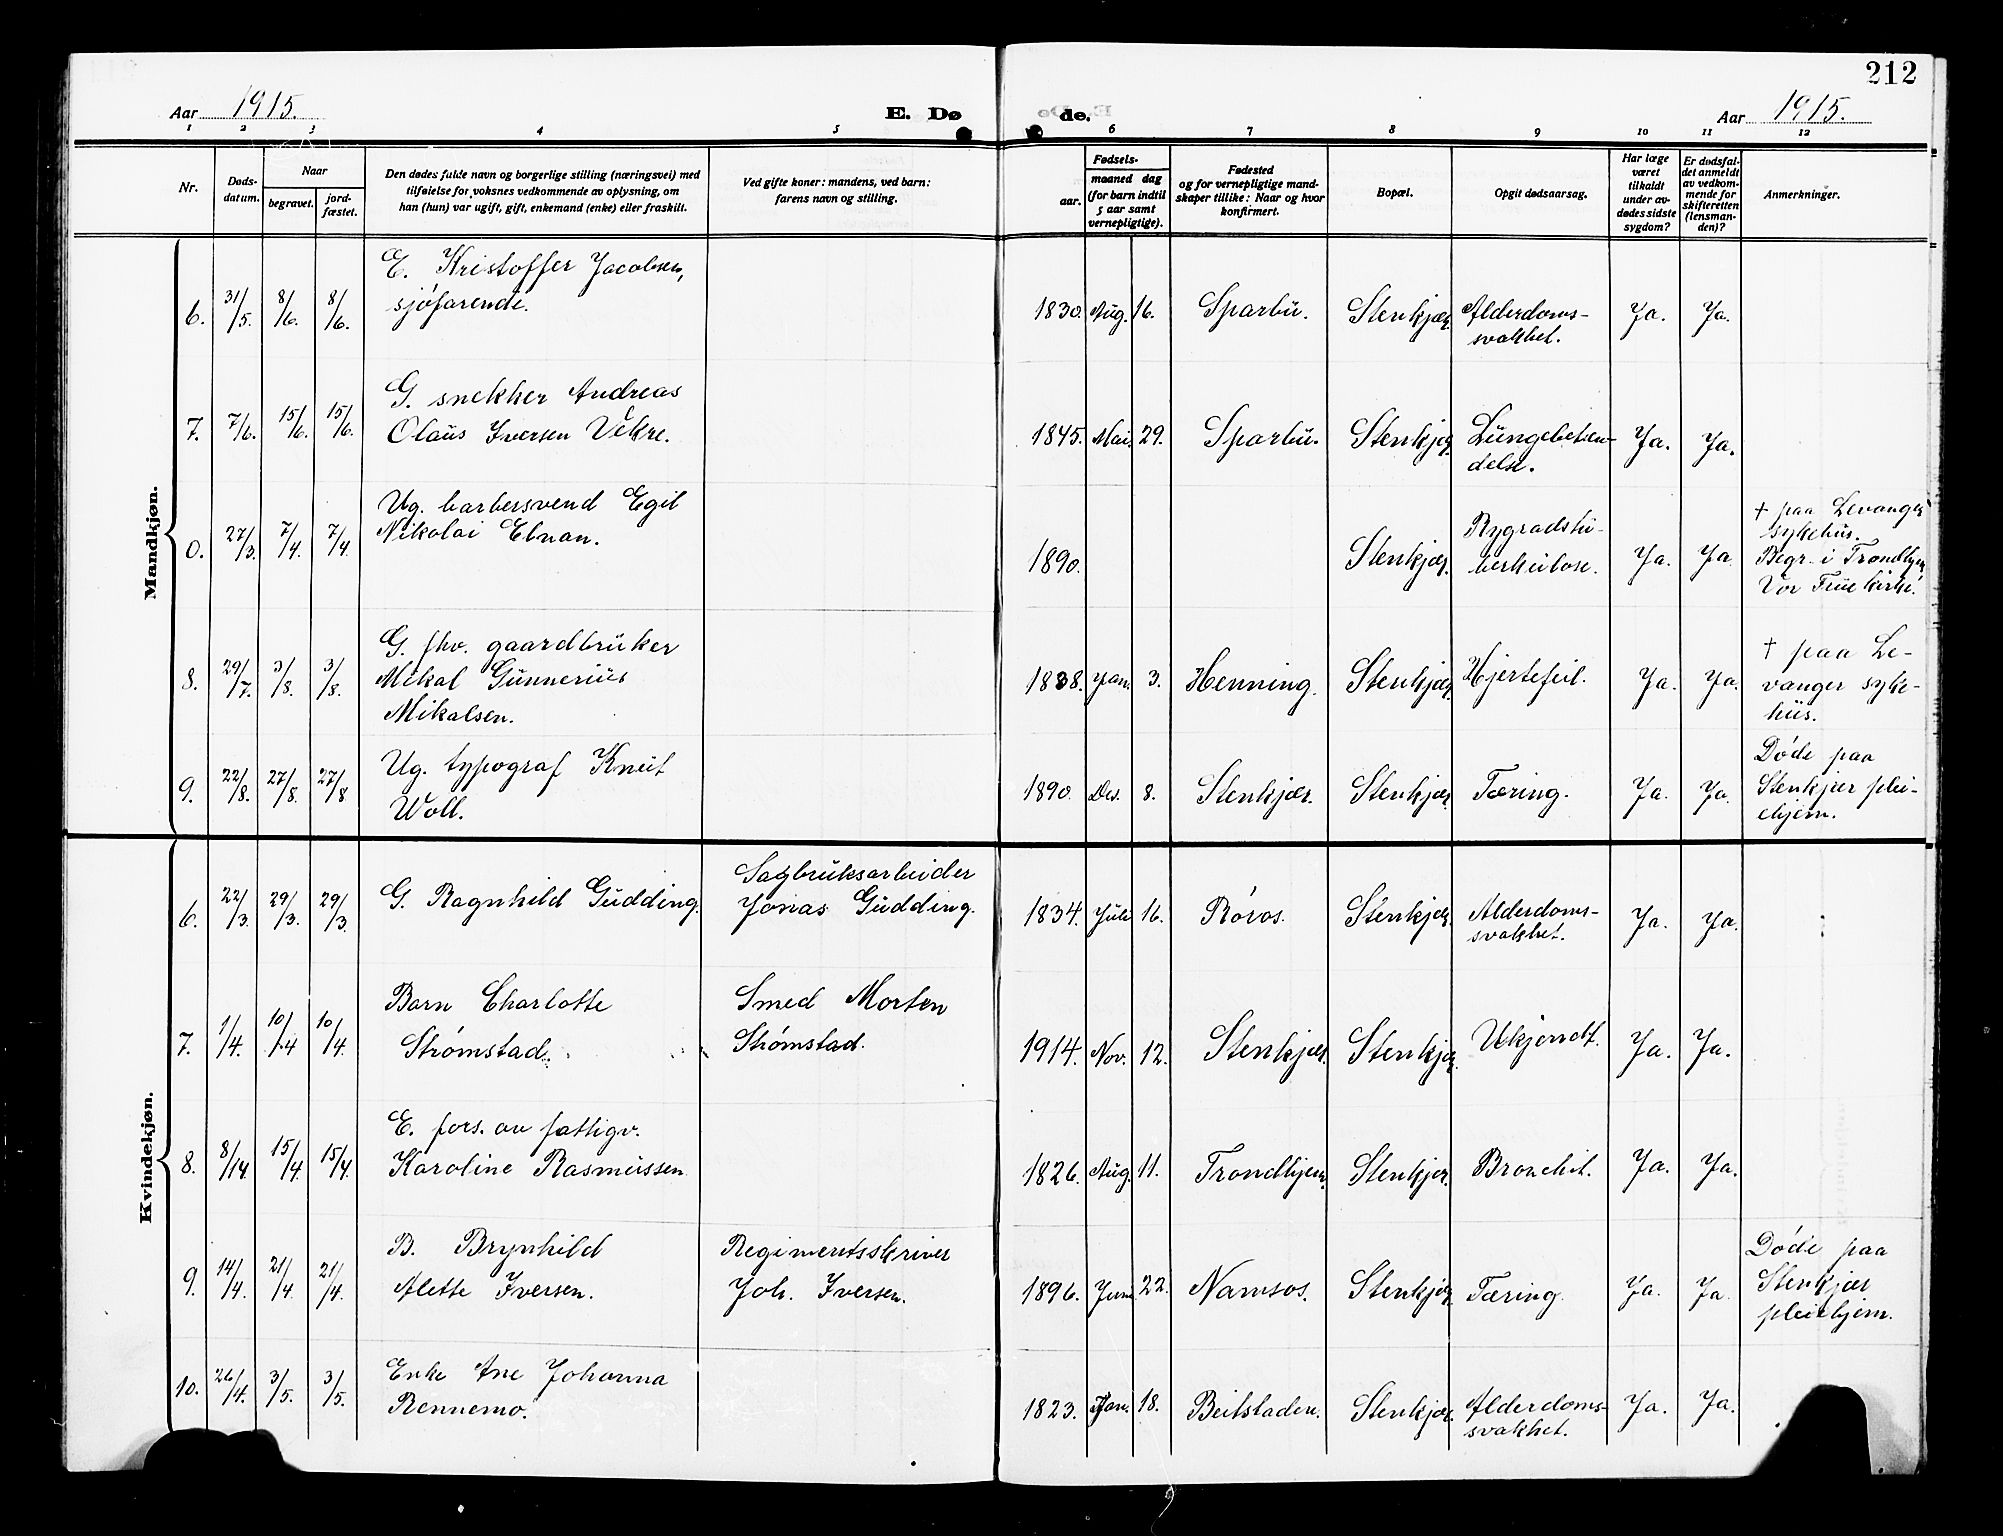 212
Aar 1915. E. Dø de. Aar 1915.
1 2 3 4 5 6 7 8 9 10 11 12
Nr.
Døds-
datum.
Naar
begravet.
jord-
fæstet.
Den dødes fulde navn og borgerlige stilling (næringsvei) med
tilføielse for voksnes vedkommende av oplysning, om
han (hun) var ugift, gift, enkemand (enke) eller fraskilt.
Ved gifte koner: mandens, ved barn:
farens navn og stilling.
Fødsels-
aar.
maaned dag
(for barn indtil
5 aar samt
vernepligtige).
Fødested
og for vernepligtige mand-
skaper tillike: Naar og hvor
konfirmert.
Bopæl.
Opgit dødsaarsag.
Har læge
været
tilkaldt
under av-
dødes sidste
sygdom?
Er dødsfal-
det anmeldt
av vedkom-
mende for
skifteretten
(lensman-
den)?
Anmerkninger.
Mandkjøn.
6. 31/5. 8/6. 8/6.
E. Kristoffer Jacobsen,
sjøfarende.
1830. Aug. 16. Sparbu. Stenkjær. Alderdoms-
svakhet.
Ja. Ja.
7. 7/6. 15/6. 15/6.
G. snekker Andreas
Olaus Iversen Vekre.
1845. Mai. 29. Sparbu. Stenkjær. Lungebeten-
delse.
Ja. Ja.
0. 27/3. 7/4. 7/4.
Ug. barbersvend Egil
Nikolai Elnan.
1890. Stenkjær. Rygradstu-
berkulose.
Ja. Ja.
† paa Levanger
sykehus.
Begr. i Trondhjem
Vor Frue kirke.
8. 29/7. 3/8. 3/8.
G. fhv. gaardbruker
Mikal Gunnerius
Mikalsen.
1838. Jan. 3. Henning. Stenkjær. Hjertefeil. Ja. Ja.
† paa Le-
vanger syke-
hus.
9. 22/8. 27/8. 27/8
Ug. typograf Knut
Woll.
1890. Des. 8. Stenkjær. Stenkjær. Tæring. Ja. Ja.
Døde paa
Stenkjær plei-
ehjem.
Kvindekjøn.
6. 22/3. 29/3. 29/3.
G. Ragnhild Gudding.
Sagbruksarbeider
Jonas Gudding.
1834. Juli 16. Røros. Stenkjær. Alderdoms-
svakhet.
Ja. Ja.
7. 1/4. 10/4 10/4.
Barn Charlotte
Strømstad.
Smed Morten
Strømstad.
1914. Nov. 12. Stenkjær. Stenkjær. Ukjendt. Ja. Ja.
8. 8/14. 15/4. 15/4.
E. fors. av fattigv.
Karoline Rasmussen
1826. Aug. 11. Trondhjem. Stenkjær. Bronchit. Ja. Ja.
9. 14/4. 21/4. 21/4.
B. Brynhild
Alette Iversen.
Regimentsskriver
Joh. Iversen.
1896. Juni 22. Namsos. Stenkjær. Tæring. Ja. Ja.
Døde paa
Stenkjær
pleiehjem.
10. 26/4. 3/5. 3/5.
Enke Ane Johanna
Rennemo.
1823. Jan. 18. Beitstaden. Stenkjær. Alderdoms-
svakhet.
Ja. Ja.